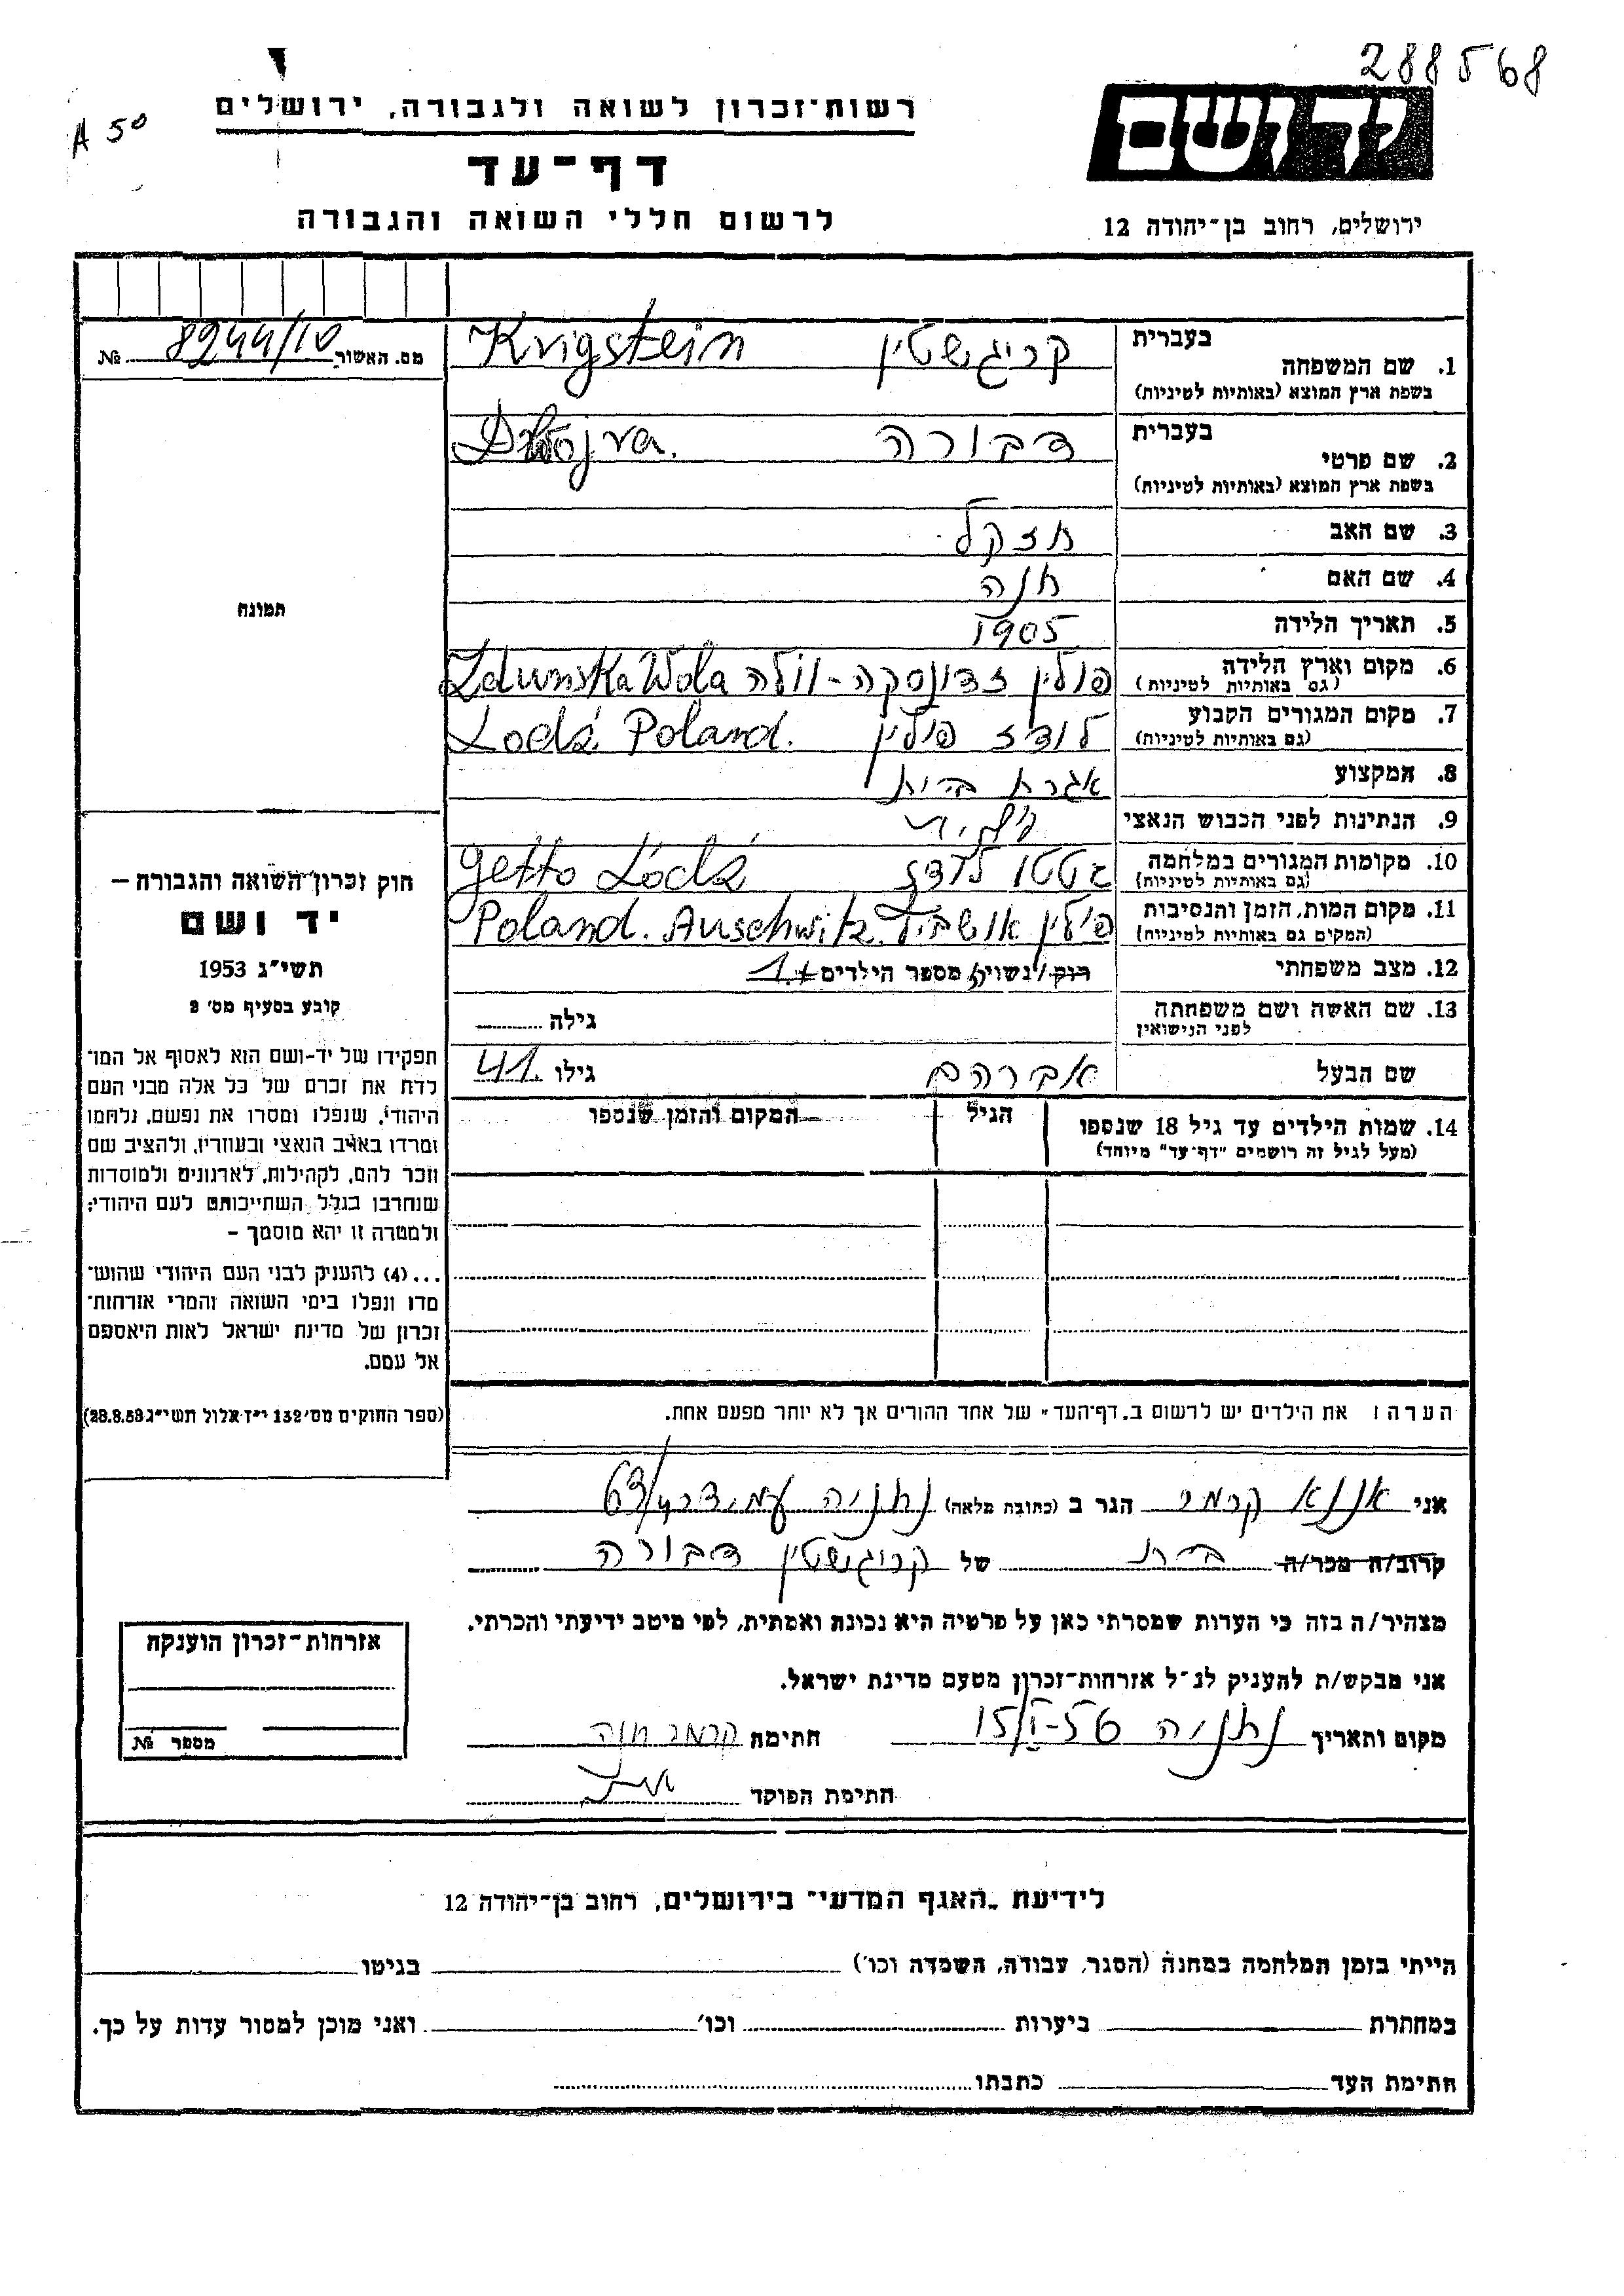 288568
A 50
רשות־זכרון לשואה ולגבורה, ירושלים
דף־עד
לרשום חללי השואה והגבורה
יד ושם
ירושלים, רחוב בן־יהודה 12
מס. האשור 8244/10 №
תמונה
בעברית
1. שם המשפחה קריגשטין Krigstein
בשפת ארץ המוצא (באותיות לטיניות)
בעברית
2. שם פרטי דבורה
בשפת ארץ המוצא (באותיות לטיניות)
3. שם האב חזקל
4. שם האם חנה
5. תאריך הלידה 1905
6. מקום וארץ הלידה פולין זדונסקה-וולה Zdunska Wola
(גם באותיות לטיניות)
7. מקום המגורים הקבוע לודז פולין Lodź Poland.
(גם באותיות לטיניות)
8. המקצוע אגרת בית
9. הנתינות לפני הכבוש הנאצי
10. מקומות המגורים במלחמה גטטו לודז getto Lodź
(גם באותיות לטיניות)
11. מקום המות, הזמן והנסיבות פולין Poland. Auschwitz
(המקום גם באותיות לטיניות)
12. מצב משפחתי רוק/נשוי/ מספר הילדים 1
13. שם האשה ושם משפחתה גילה
לפני הנישואין
שם הבעל אברהם גילו 41
14. שמות הילדים עד גיל 18 שנספו הגיל המקום והזמן שנספו
(מעל לגיל זה רושמים "דף־עד" מיוחד)
הערה: את הילדים יש לרשום ב"דף־העד" של אחד ההורים אך לא יותר מפעם אחת.
חוק זכרון השואה והגבורה —
יד ושם
תשי"ג 1953
קובע בסעיף מס' 2
תפקידו של יד-ושם הוא לאסוף אל המו־
לדת את זכרם של כל אלה מבני העם
היהודי, שנפלו ומסרו את נפשם, נלחמו
ומרדו באויב הנאצי ובעוזריו, ולהציב שם
וזכר להם, לקהילות, לארגונים ולמוסדות
שנחרבו בגלל השתייכותם לעם היהודי;
ולמטרה זו יהא מוסמך –
...(4) להעניק לבני העם היהודי שהוש־
מדו ונפלו בימי השואה והמרי אזרחות־
זכרון של מדינת ישראל לאות היאספם
אל עמם.
(ספר החוקים מס' 132 י"ז אלול תשי"ג 28.8.53)
אני אננא קרמר הגר ב (כתובת מלאה) נתניה עמידר 63/
קרוב/ה מכר/ה בת של קריגשטין דבורה
מצהיר/ה בזה כי העדות שמסרתי כאן על פרטיה היא נכונה ואמתית, לפי מיטב ידיעתי והכרתי.
אני מבקש/ת להעניק לנ"ל אזרחות־זכרון מטעם מדינת ישראל.
מקום ותאריך נתניה 15/I-56 חתימה קרמר חנה
חתימת הפוקד
אזרחות־זכרון הוענקה
מספר №
לידיעת "האגף המדעי" בירושלים, רחוב בן־יהודה 12
הייתי בזמן המלחמה במחנה (הסגר, עבודה, השמדה וכו') בגיטו
במחתרת ביערות וכו' ואני מוכן למסור עדות על כך.
חתימת העד כתבתו